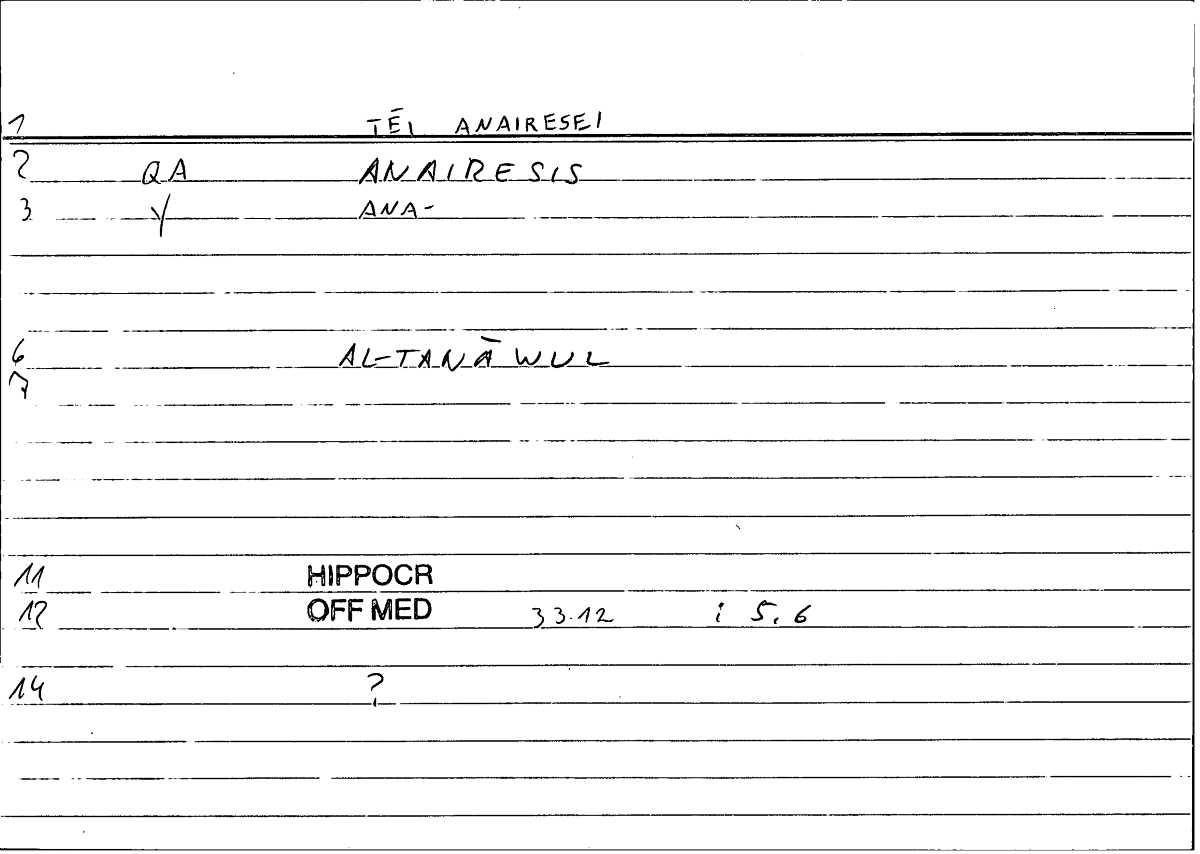 1 TĒI ANAIRESEI
2 QA ANAIRESIS
3 Y ANA-
6 AL-TANĀWUL
7
11 HIPPOCR
12 OFF MED 33.12 i 5.6
14 ?